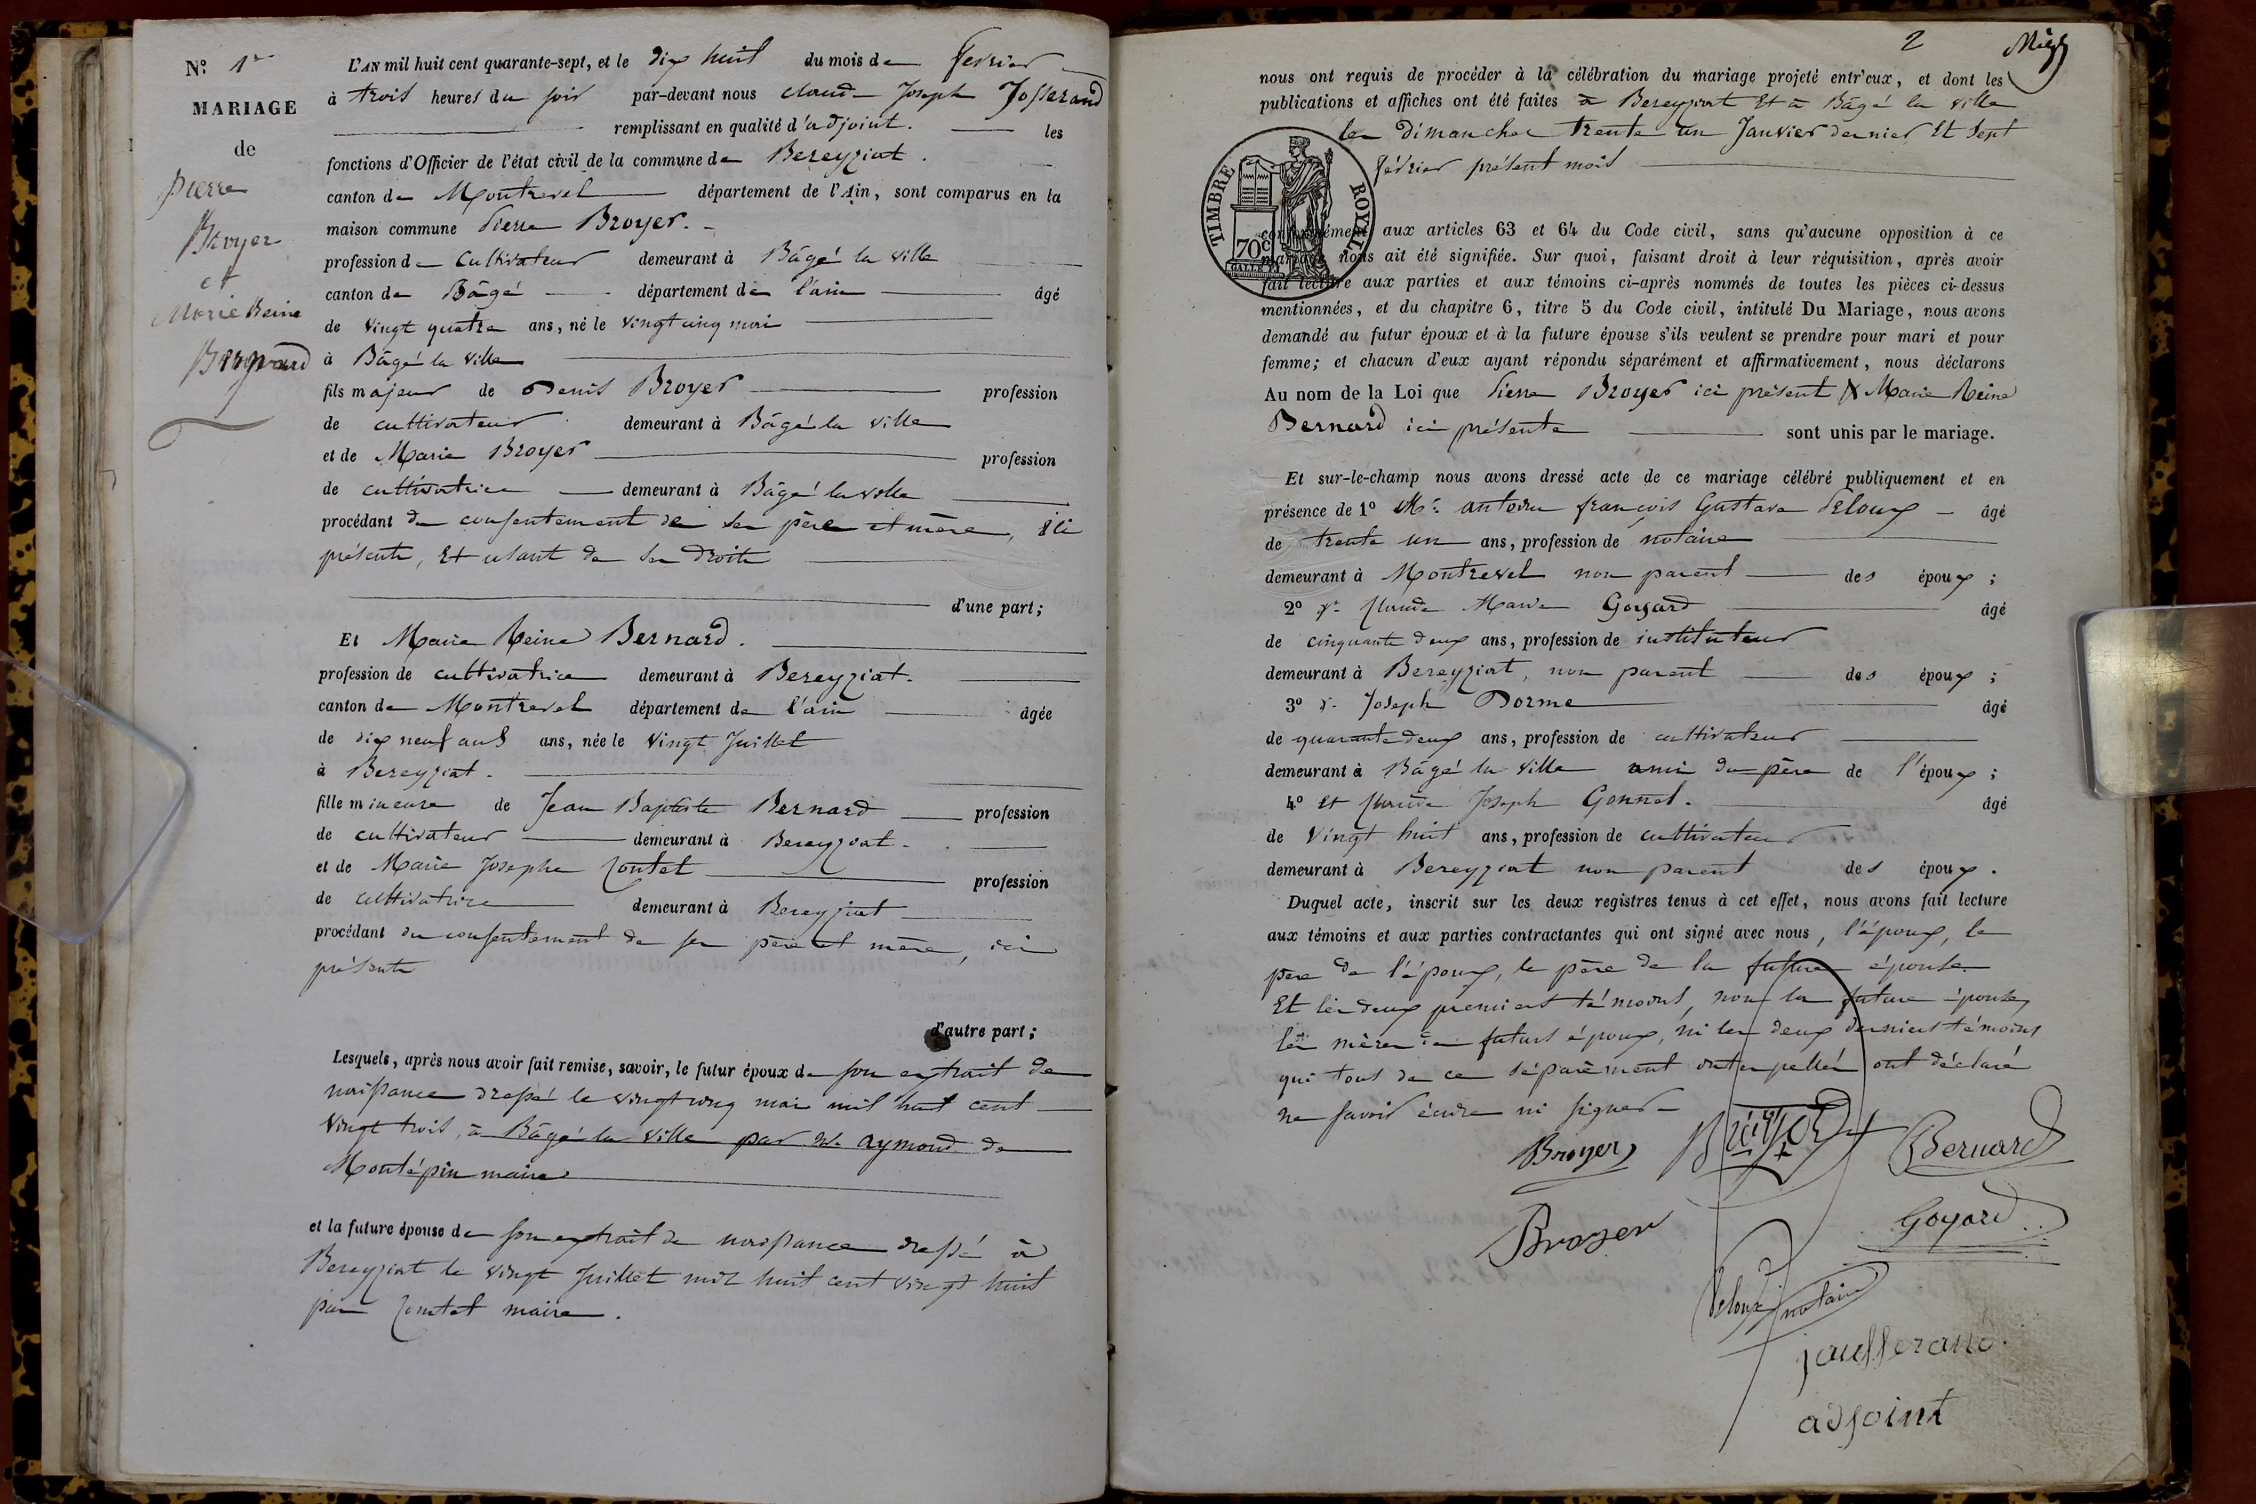 N.º 1er
MARIAGE
de
Pierre
Broyer
et
Marie Reine
Bernard
L'AN mil huit cent quarante-sept, et le dix huit du mois de fevrier
à trois heures du soir par-devant nous Claude Joseph Josserand
remplissant en qualité d'adjoint. les
fonctions d'Officier de l'état civil de la commune de Bereyziat.
canton de Montrevel département de l'Ain, sont comparus en la
maison commune Pierre Broyer.
profession de Cultivateur demeurant à Bâgé la ville
canton de Bâgé département de l'ain âgé
de vingt quatre ans, né le vingt cinq mai
à Bâgé la ville
fils majeur de Denis Broyer profession
de cultivateur demeurant à Bâgé la ville
et de Marie Broyer profession
de cultivatrice demeurant à Bâgé la ville
procédant du consentement de ses père et mère, ici
présents, Et usant de ses droits
d'une part;
Et Marie Reine Bernard.
profession de cultivatrice demeurant à Bereyziat.
canton de Montrevel département de l'ain âgée
de dix neuf ans ans, née le vingt Juillet
à Bereyziat.
fille mineure de Jean Baptiste Bernard profession
de cultivateur demeurant à Bereyziat.
et de Marie Josephe Contet profession
de cultivatrice demeurant à Bereyziat
procédant du consentement de ses père et mère, ici
présents
d'autre part;
Lesquels, après nous avoir fait remise, savoir, le futur époux de son extrait de
naissance dressé le vingt cinq mai mil huit cent
vingt trois, à Bâgé la ville par Mr aymond de
Montépin maire
et la future épouse de son extrait de naissance dressé à
Bereyziat le vingt Juillet mil huit cent vingt huit
par Contet maire.
2
nous ont requis de procéder à la célébration du mariage projeté entr'eux, et dont les
publications et affiches ont été faites à Bereyziat Et à Bâgé la ville
les Dimanches trente un Janvier dernier Et Sept
février présent mois
TIMBRE ROYAL
70c
conformément aux articles 63 et 64 du Code civil, sans qu'aucune opposition à ce
mariage nous ait été signifiée. Sur quoi, faisant droit à leur réquisition, après avoir
fait lecture aux parties et aux témoins ci-après nommés de toutes les pièces ci-dessus
mentionnées, et du chapitre 6, titre 5 du Code civil, intitulé Du Mariage, nous avons
demandé au futur époux et à la future épouse s'ils veulent se prendre pour mari et pour
femme; et chacun d'eux ayant répondu séparément et affirmativement, nous déclarons
Au nom de la Loi que Pierre Broyer ici présent & Marie Reine
Bernard ici présente sont unis par le mariage.
Et sur-le-champ nous avons dressé acte de ce mariage célébré publiquement et en
présence de 1º Mr. antoine françois Gustave Deloux âgé
de trente un ans, profession de notaire
demeurant à Montrevel non parent des époux;
2º Claude Marie Goyard âgé
de cinquante deux ans, profession de instituteur
demeurant à Bereyziat, non parent des époux;
3º Joseph Dorme âgé
de quarante deux ans, profession de cultivateur
demeurant à Bâgé la ville ami du père de l'époux;
4º Et Claude Joseph Gonnet. âgé
de vingt huit ans, profession de cultivateur
demeurant à Bereyziat non parent des époux.
Duquel acte, inscrit sur les deux registres tenus à cet effet, nous avons fait lecture
aux témoins et aux parties contractantes qui ont signé avec nous, l'époux, le
père de l'époux, le père de la future épouse
Et les deux premiers témoins, non la future épouse,
les mères des futurs époux, ni les deux derniers témoins
qui tous de ce séparément interpellés ont déclaré
ne savoir écrire ni signer
Broyer Bernard
Broyer Goyard
Deloux notaire
jausserand.
adjoint